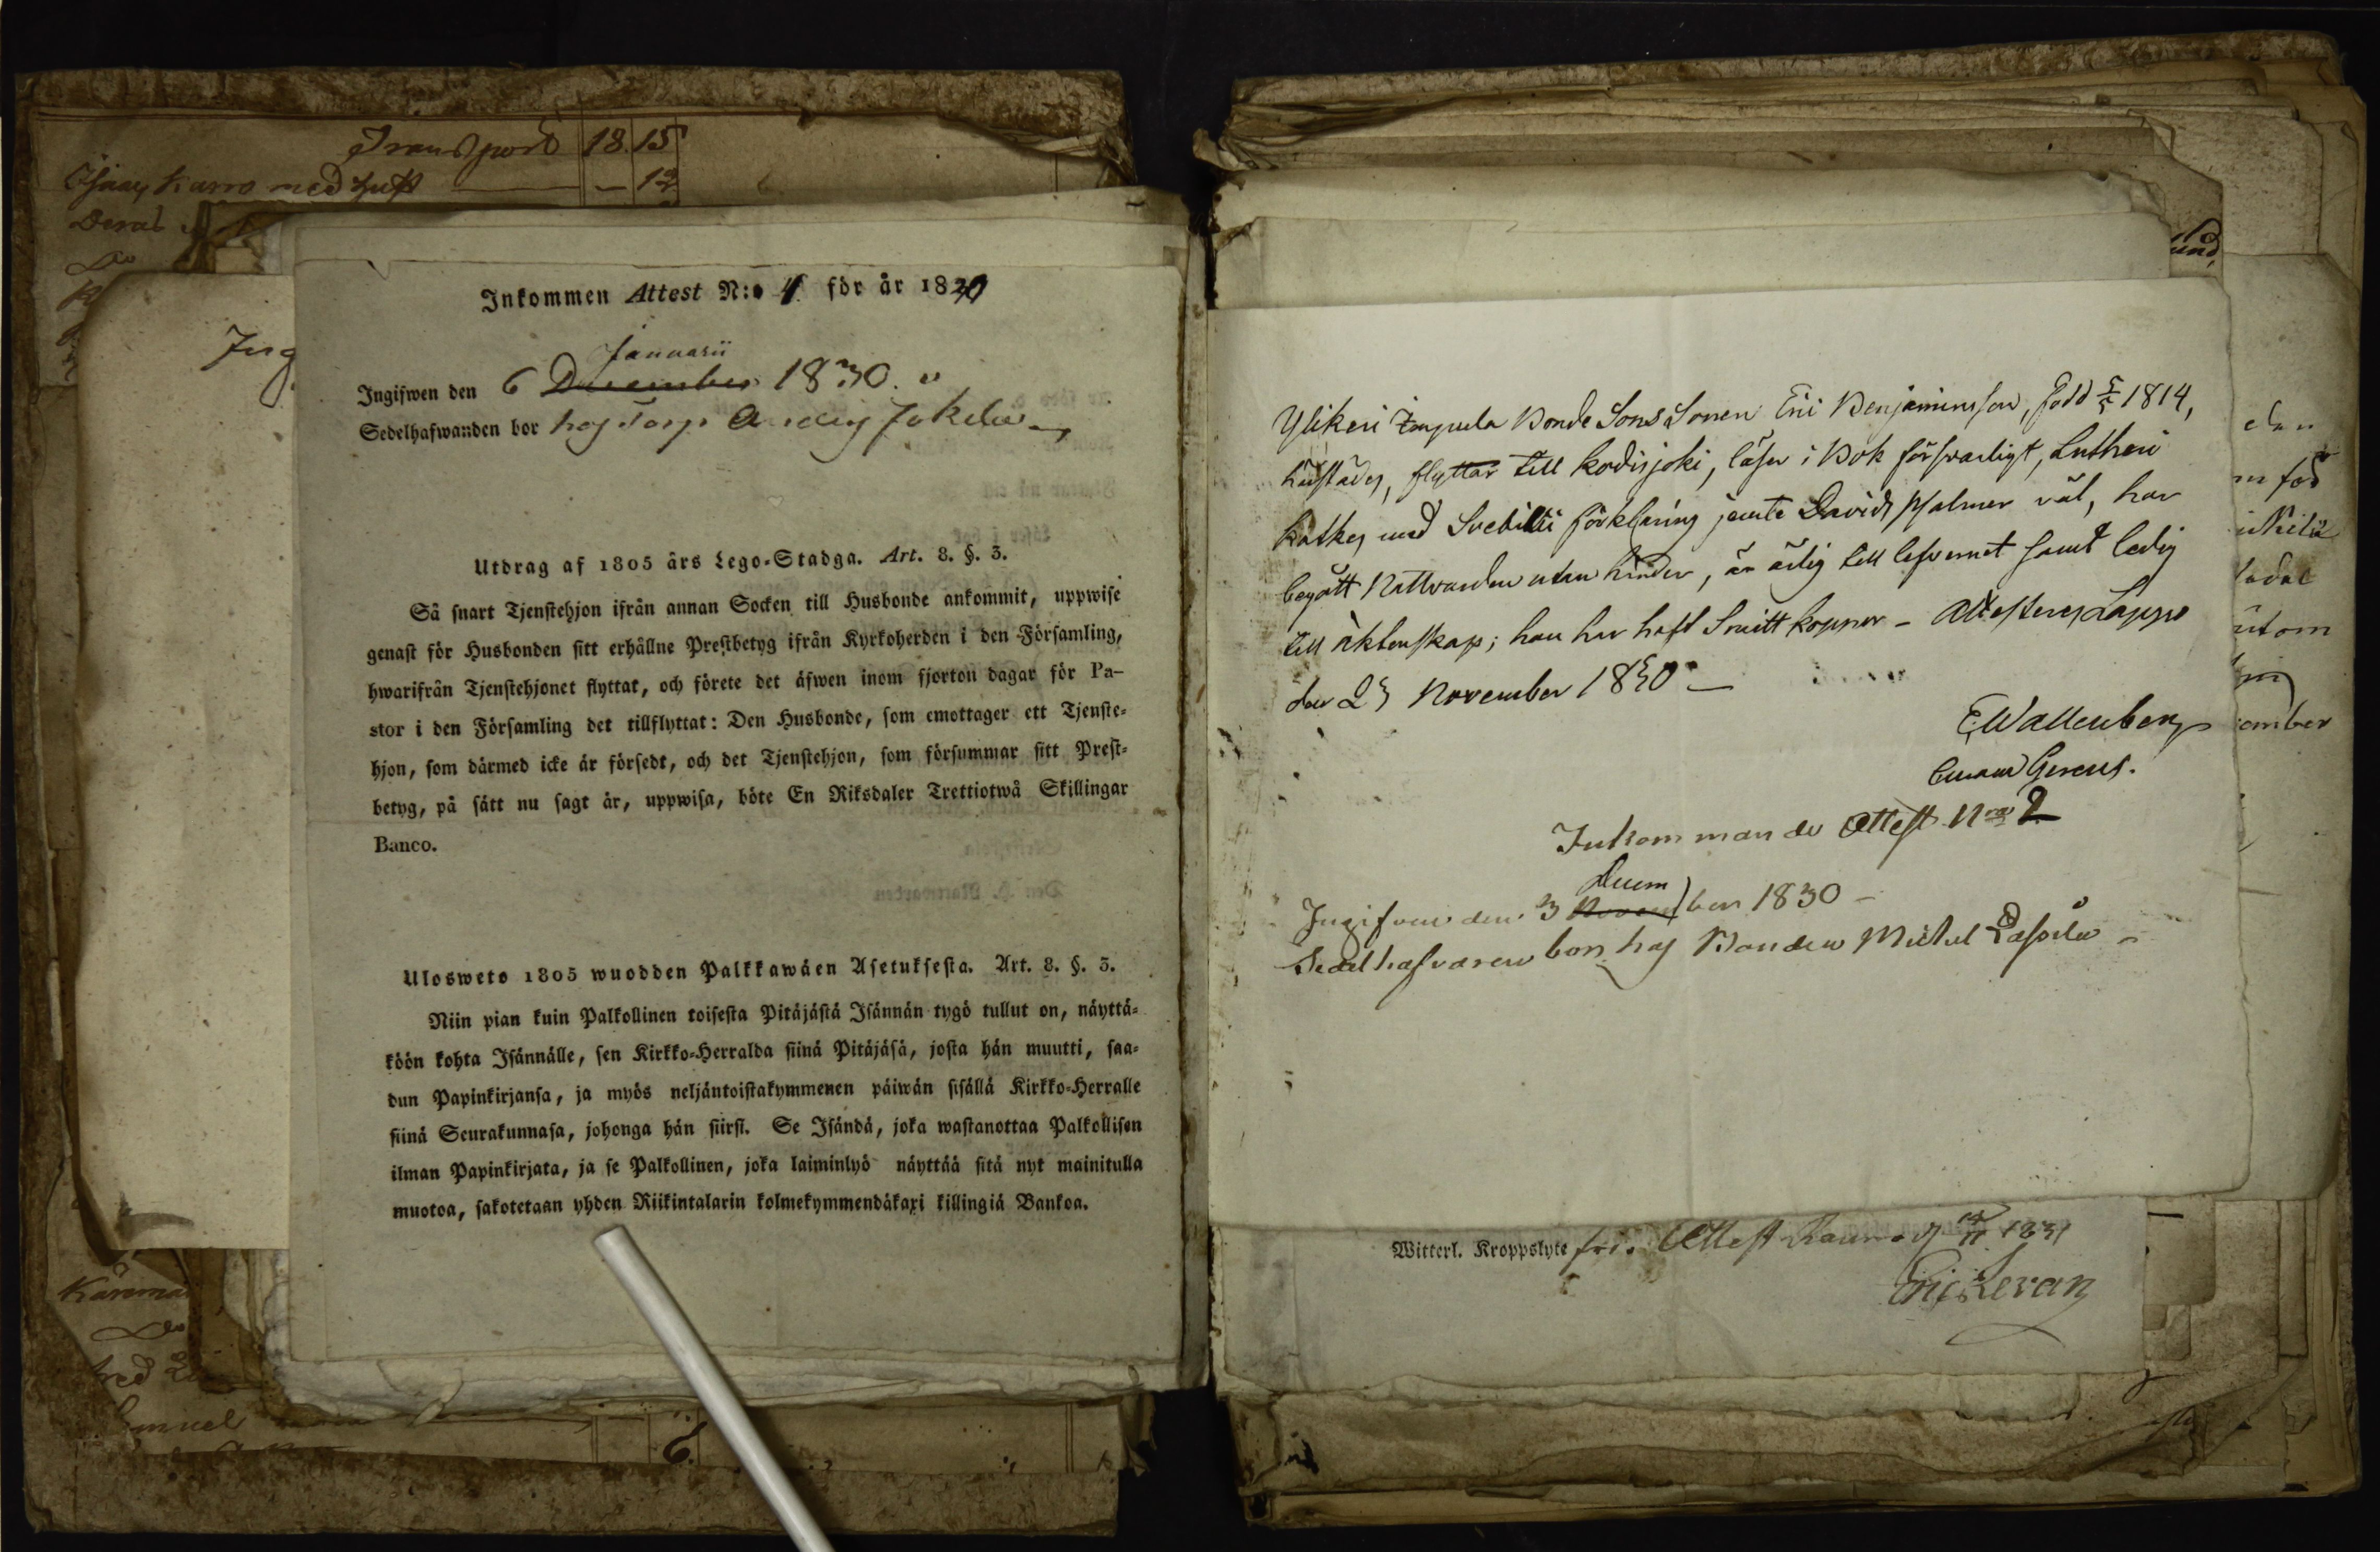 Transport 18. 15
med
— 12
Inkommen Attest N:o 4 för år 1830
Januarii
Ingifwen den 6 December 1830.
Sedelhafwanden bor hos Torp Jokela
Utdrag af 1805 års Lego-Stadga. Art. 8. §. 3.
Så snart Tjenstehjon ifrån annan Socken till Husbonde ankommit, uppwise
genast för Husbonden sitt erhållne Prestbetyg ifrån Kyrkoherden i den Församling,
hwarifrån Tjenstehjonet flyttat, och förete det äfwen inom fjorton dagar för Pa-
stor i den Församling det tillflyttat: Den Husbonde, som emottager ett Tjenste-
hjon, som därmed icke är försedt, och det Tjenstehjon, som försummar sitt Prest-
betyg, på sätt nu sagt är, uppwisa, böte En Riksdaler Trettiotwå Skillingar
Banco.
Ulosweto 1805 wuodden Palkkawäen Asetuksesta. Art. 8. §. 3.
Niin pian kuin Palkollinen toisesta Pitäjästä Isännän tygö tullut on, näyttä-
köön kohta Isännälle, sen Kirkko-Herralda siinä Pitäjäsä, josta hän muutti, saa-
dun Papinkirjansa, ja myös neljäntoistakymmenen päiwän sisällä Kirkko-Herralle
siinä Seurakunnasa, johonga hän siirsi. Se Isändä, joka wastanottaa Palkollisen
ilman Papinkirjata, ja se Palkollinen, joka laiminlyö näyttää sitä nyt mainitulla
muotoa, sakotetaan yhden Riikintalarin kolmekymmendäkaxi killingiä Bankoa.
Ylikeri Bonde Sons Sonen Eric Benjaminsson, född 5/5 1814,
härstädes, flyttar till Kodisjoki, läser i Bok försvarligt, Lutheri
Katkes med Svebilii förklaring jemte Davids Psalmer väl, har
begått Nattvarden utan hinder, är ärlig till lefvernet samt ledig
till äktenskap; han har haft Smittkoppor – Attesteras Lappo
den 23 November 1830 —
E. Wallenberg
Curam Gerens.
Inkommande Attest Nro 2
Decem
Ingifven den 3 Novem ber 1830 –
Sedelhafvaren bor hos Bonden Michel
Witterl. Kroppslyte fri. Attest Raumo 1831
Eric Levan